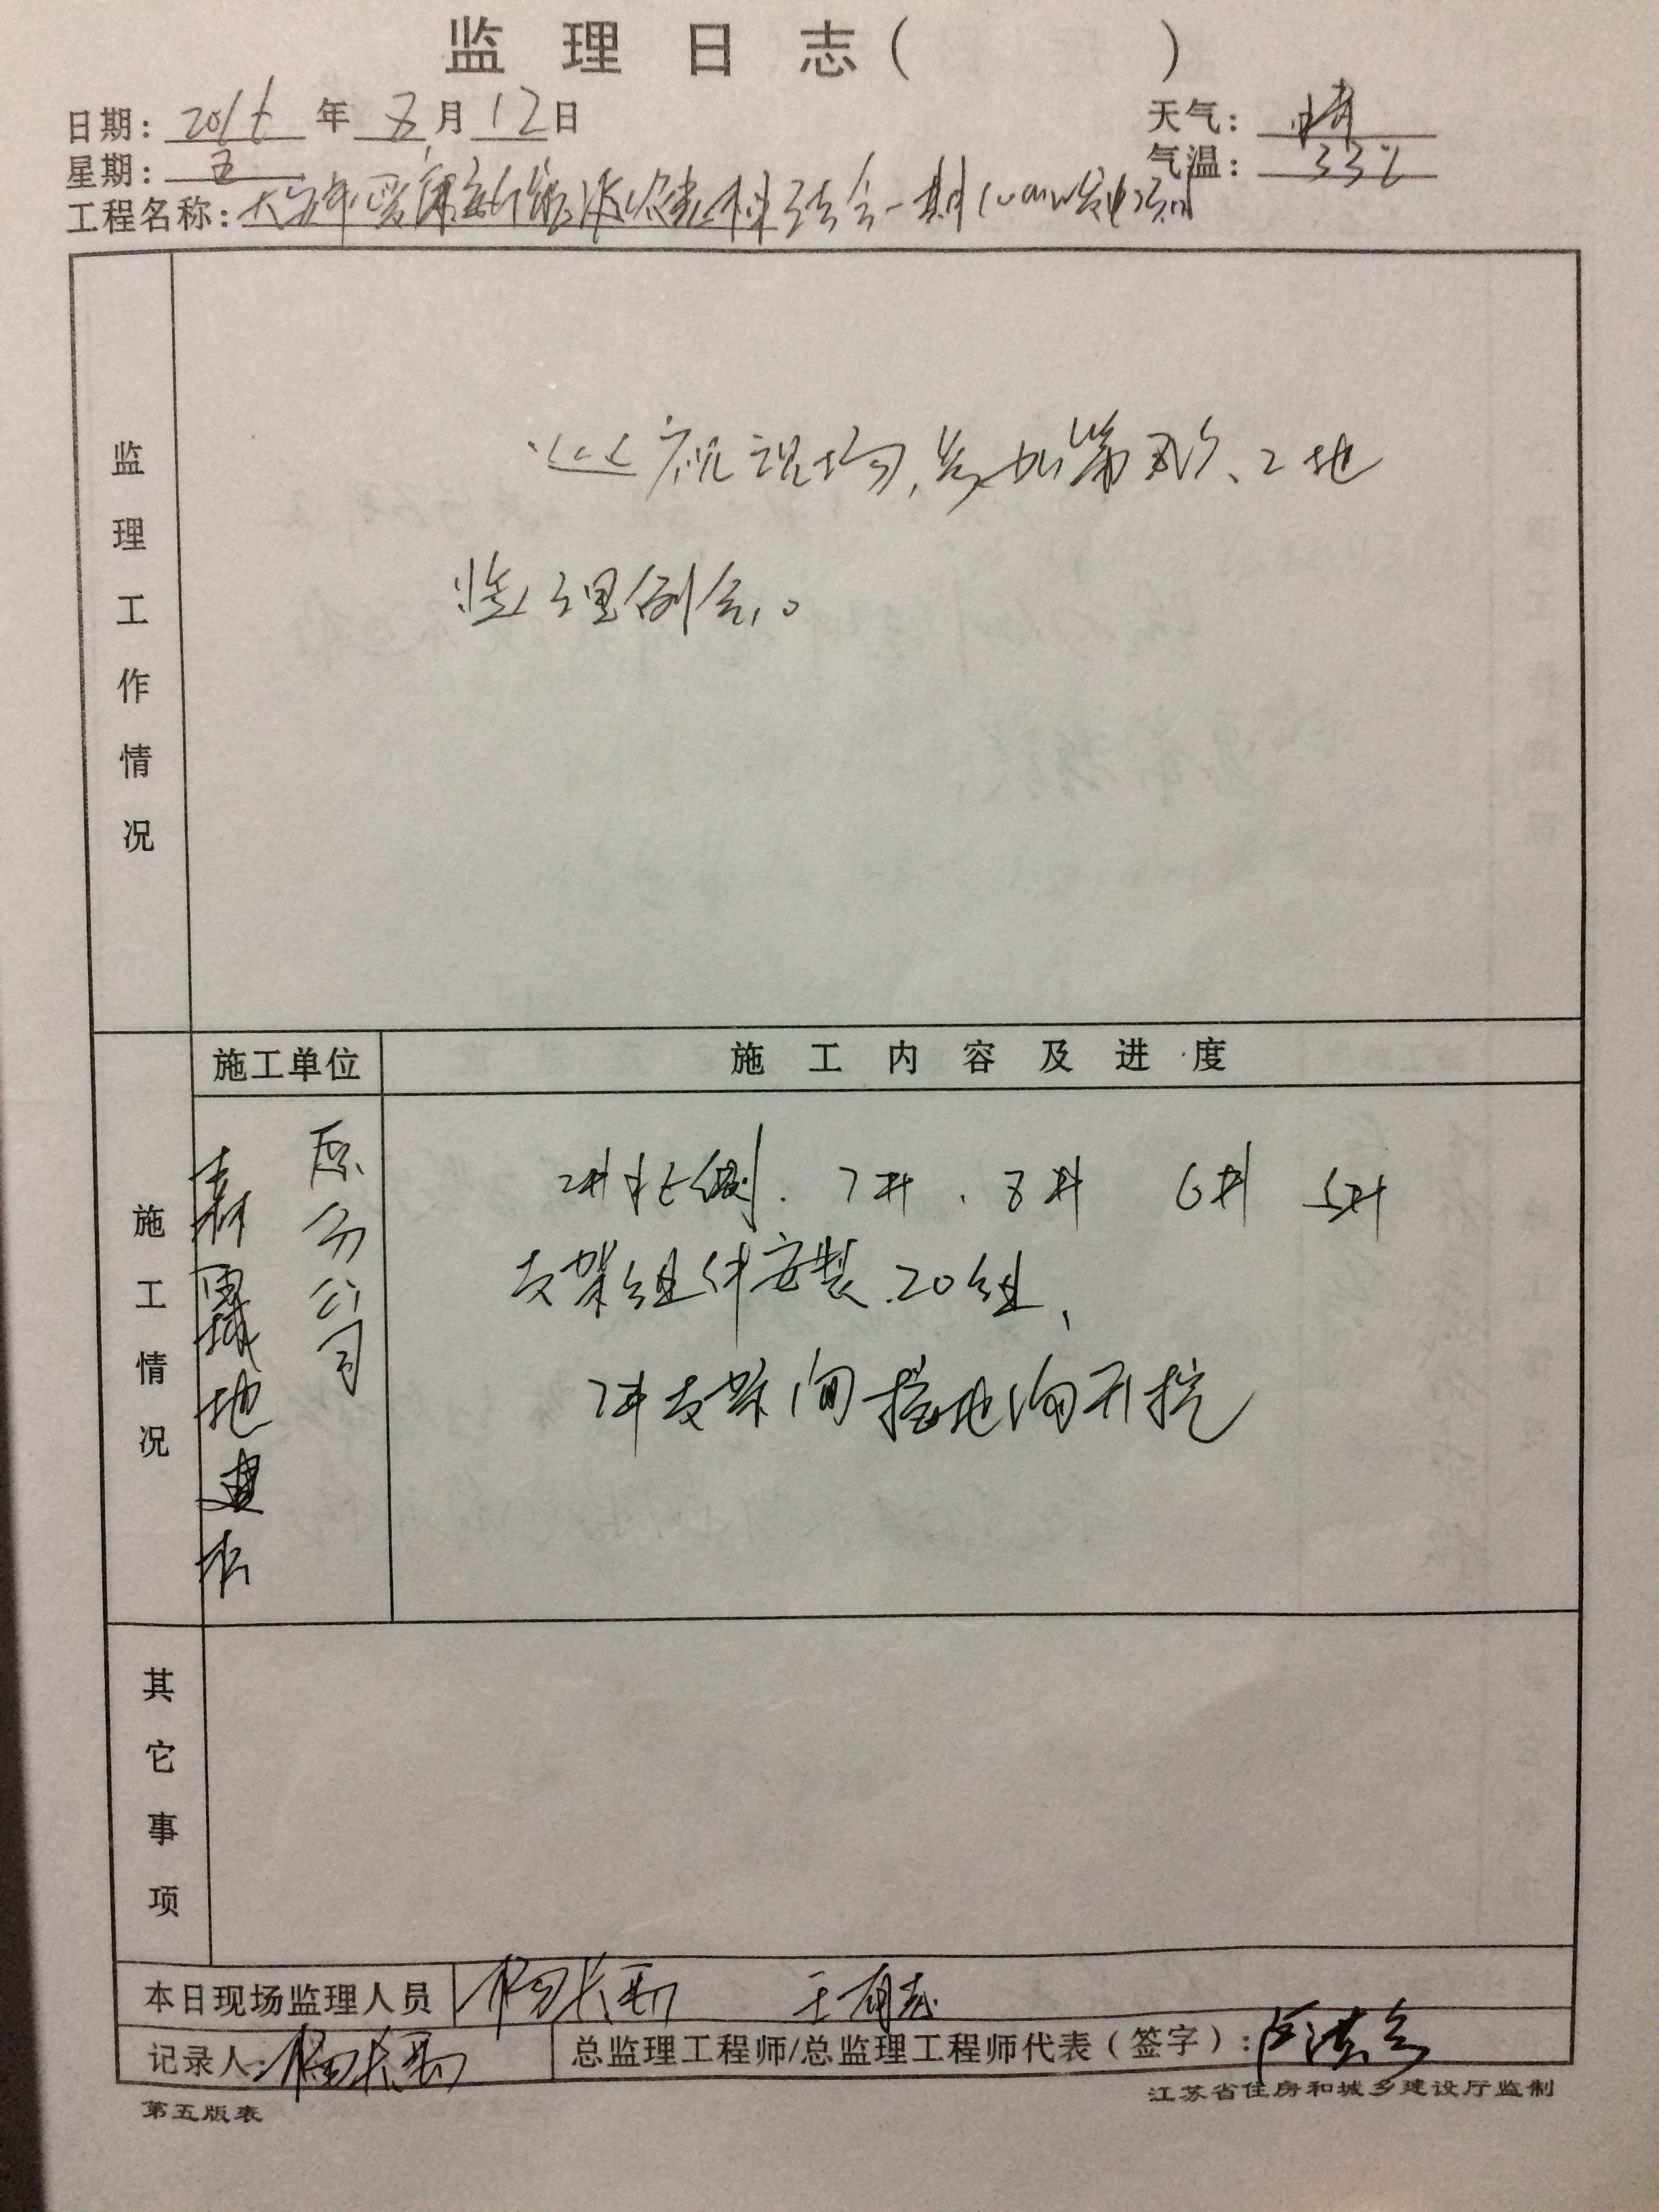 监理日志（ ）
日期：2016年8月12日
天气：晴
星期：五
气温：33℃
工程名称：新能源 结合一期10MW发电项目
监理工作情况
巡视现场，参加第 次工地
监理例会。
施工情况
施工单位
施工内容及进度
分公司
2#北侧、7#、8# 6# 5#
支架组件安装20组、
7#支架间接地沟开挖
其它事项
本日现场监理人员
记录人：
总监理工程师/总监理工程师代表（签字）：
第五版表
江苏省住房和城乡建设厅监制